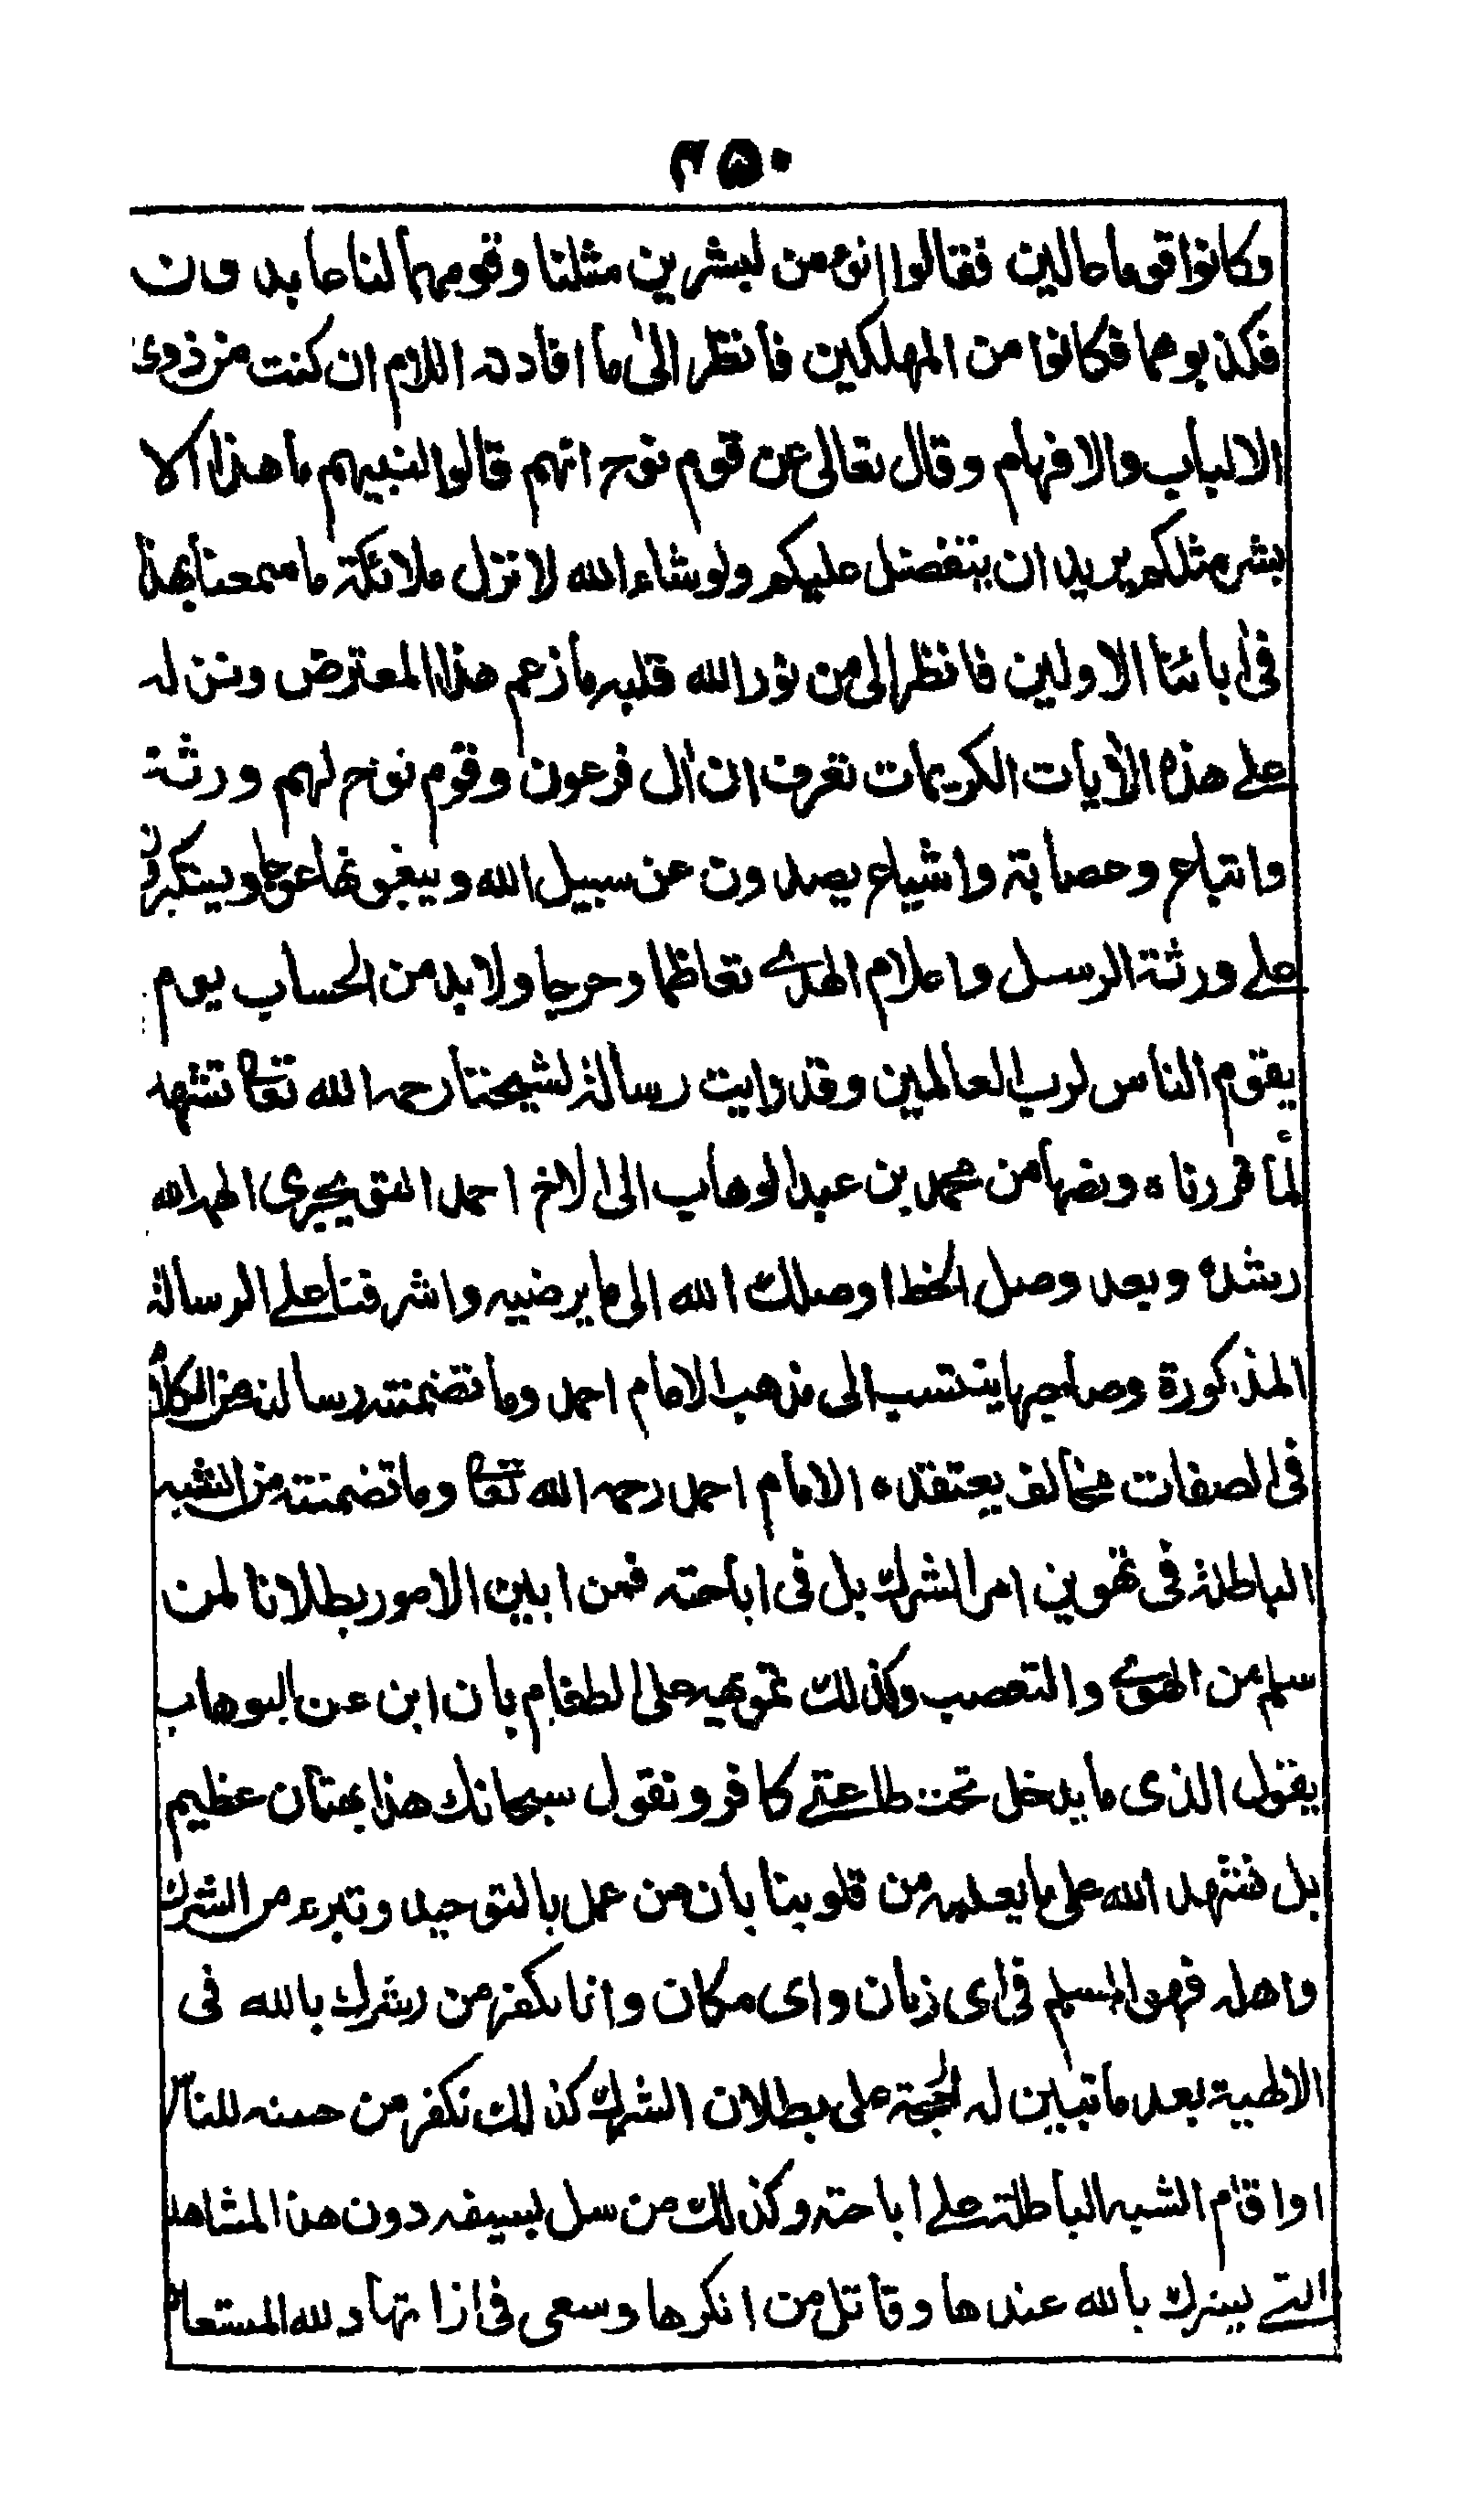 ٢٥٠
وكانوا قوما عالين فقالوا انؤمن لبشرين مثلنا وقومهما لنا عابدون
فكذبوهما فكانوا من المهلكين فانظر الى ما افادته اللام ان كنت من ذوى
الالباب والافهام وقال تعالى عن قوم نوح انهم قالوا لنبيهم ما هذا الا
بشر مثلكم يريد ان يتفضل عليكم ولو شاء الله لانزل ملائكة ما سمعنا بهذا
فى ابائنا الاولين فانظر الى من نور الله قلبه ما زعم هذا المعترض ونزله
على هذه الأيات الكريمات تعرف ان أل فرعون وقوم نوح لهم ورثة
واتباع وعصابة واشياع يصدون عن سبيل الله ويبغونها عوجا ويستكبرون
على ورثة الرسل واعلام الهدى تعاظما وحرجا ولا بد من الحساب يوم
يقوم الناس لرب العالمين وقد رايت رسالة لشيخنا رحمه الله تعا تشهد
لما قررناه ونصها من محمد بن عبد الوهاب الى الاخ احمد التويجرى الهمه الله
رشده وبعد وصل الخط اوصلك الله الى ما يرضيه واشرفنا على الرسالة
المذكورة وصاحبها ينتسب الى مذهب الامام احمد وما تضمنته رسالته من الكلام
فى الصفات مخالف يعتقده الامام احمد رحمه الله تعا وما تضمنته من الشبه
الباطلة فى تهوين امر الشرك بل فى اباحته فمن ابين الامور بطلانا لمن
سلم من الهوى والتعصب وكذلك تمويهه على الطغام بان ابن عن البوهاب
يقول الذى ما يدخل تحت طاعتى كافر ونقول سبحانك هذا بهتان عظيم
بل نشهد الله على ما يعلمه من قلوبنا بان من عمل بالتوحيد وتبرء من الشرك
واهله فهو المسلم فى اى زمان واى مكان وانا نكفر من يشرك بالله فى
الالهية بعد ما تبين له الحجة على بطلان الشرك كذلك نكفر من حسنه للناس
او اقام الشبه الباطلة على اباحته وكذلك من سل لبسيفه دون هذا المشاهد
التى يشرك بالله عندها وقاتل من انكرها وسعى فى ازالتها ولله المستعان